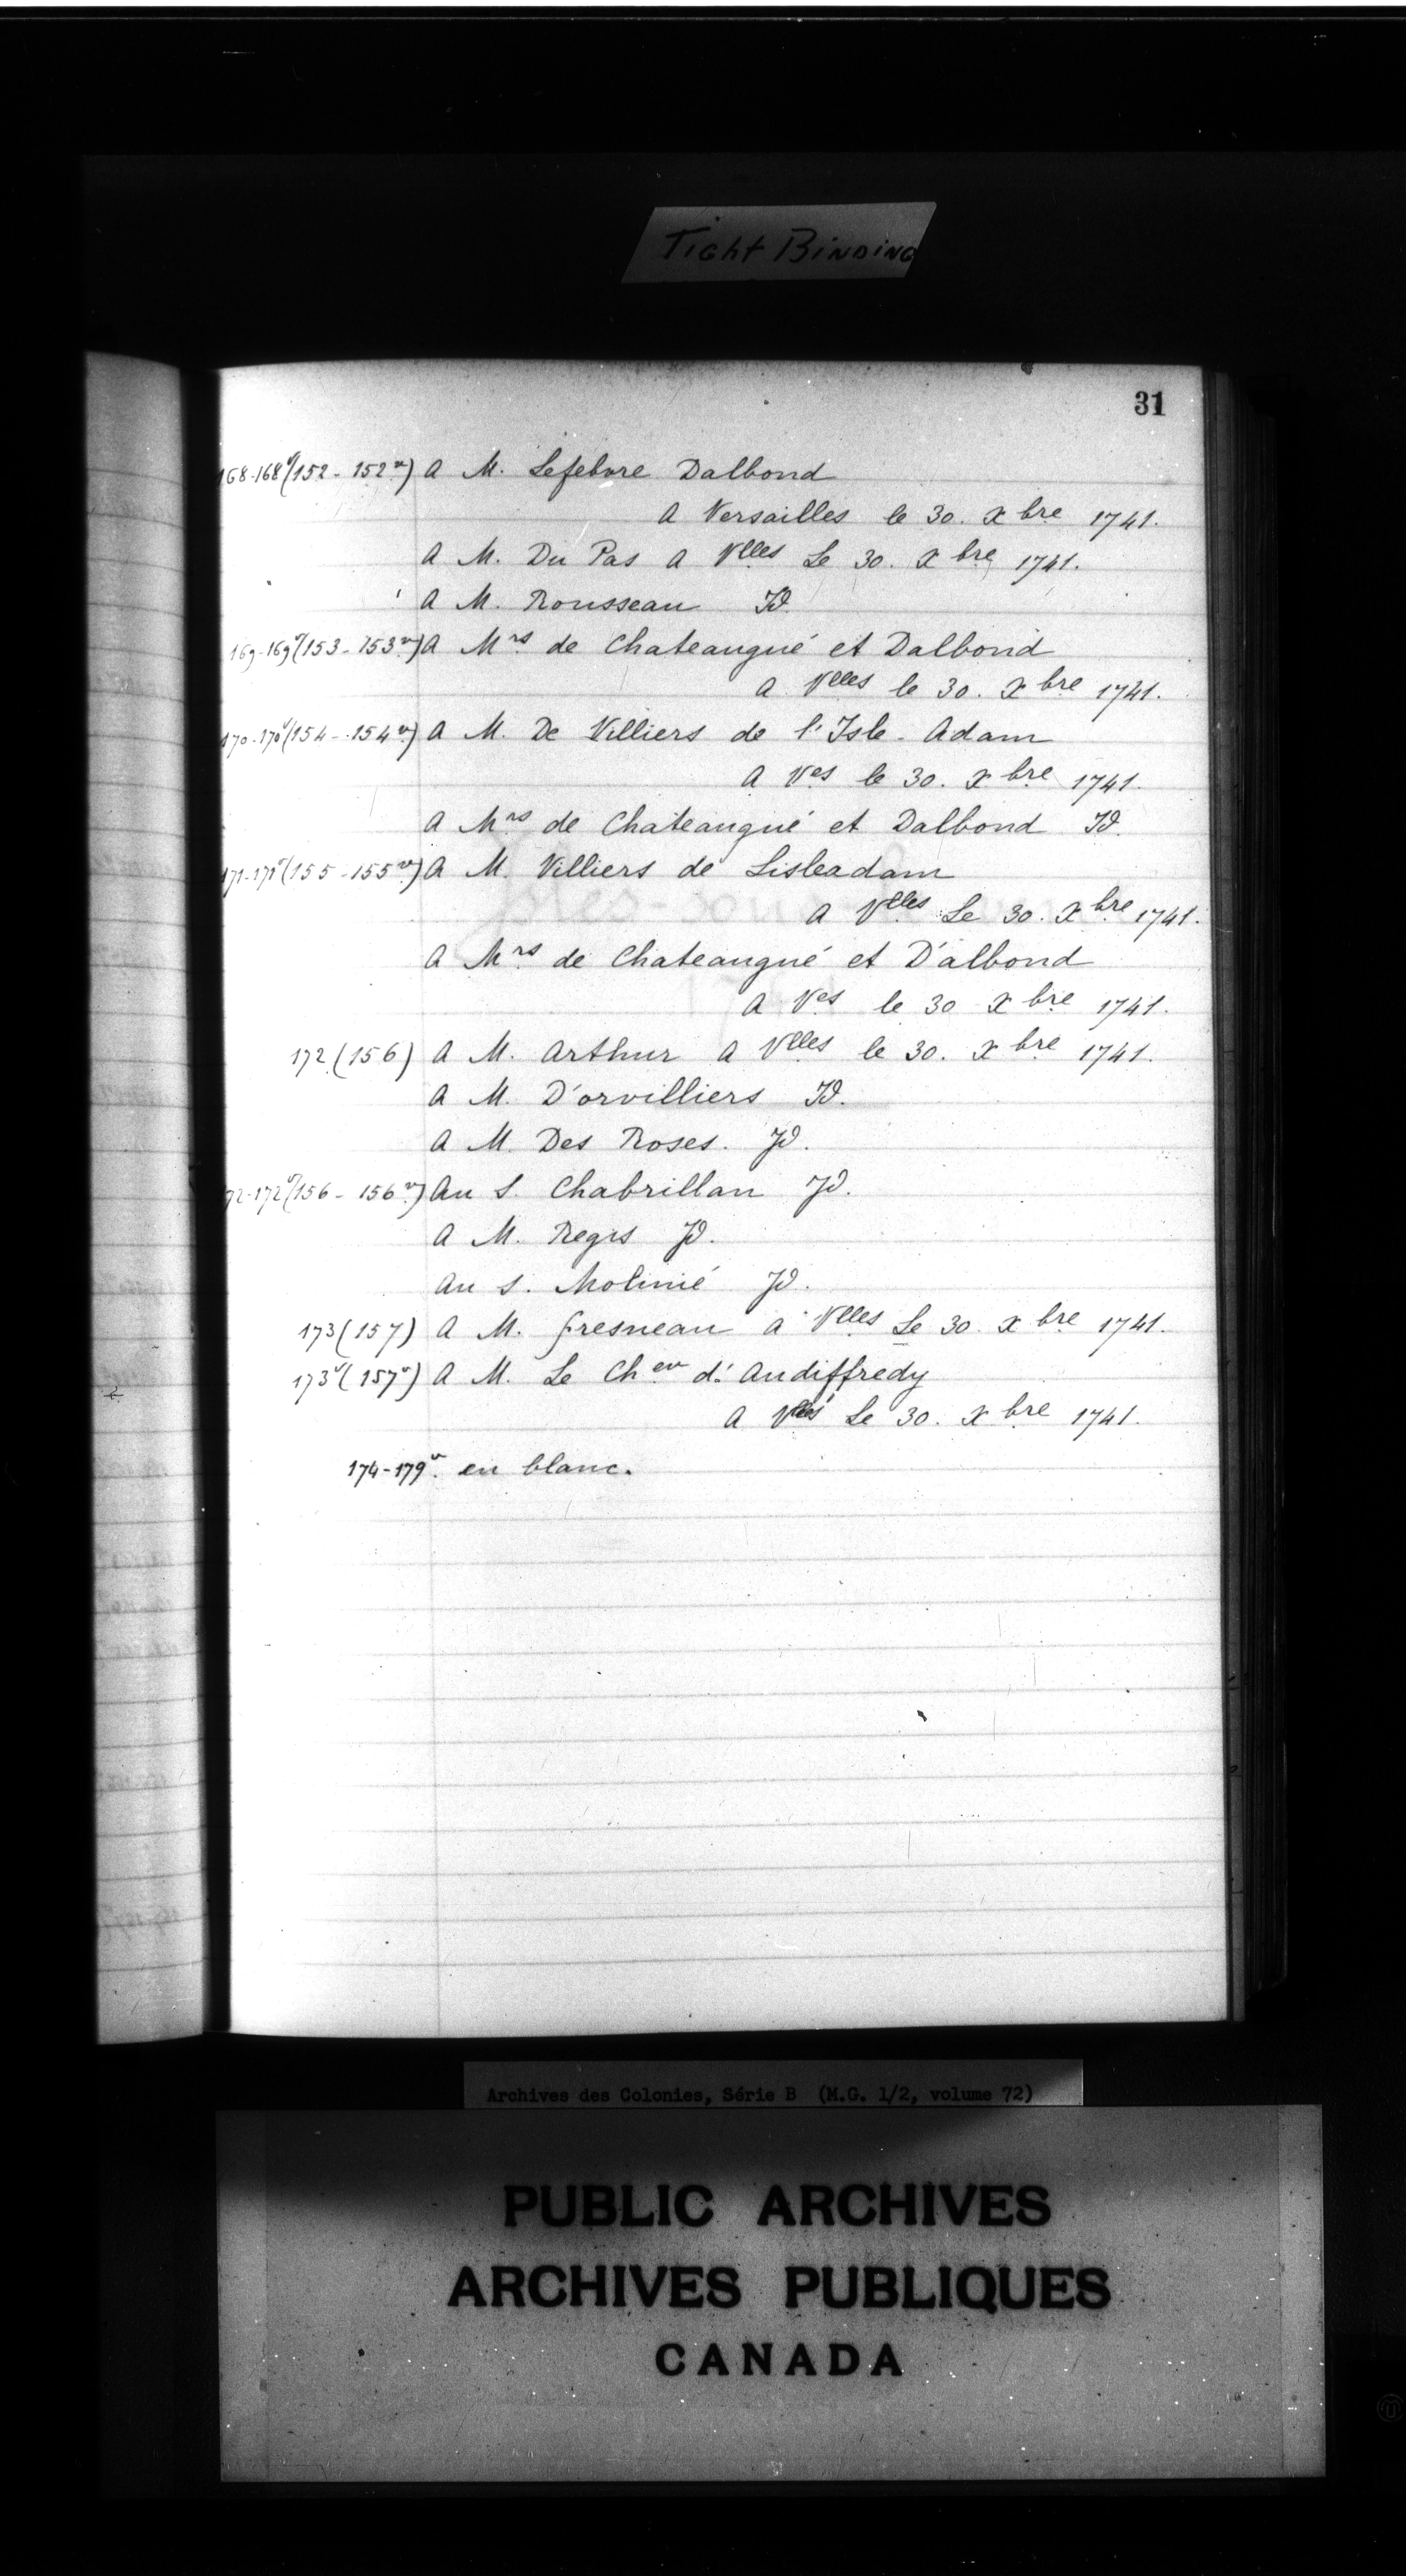 Tight Binding
31
168-168v (152-152vo) A M. Lefebvre Dalbond
A Versailles le 30. Xbre 1741.
A M. Du Pas A Vlles Le 30. Xbre 1741.
A M. Rousseau Id.
169-169v (153-153vo) A Mrs de Chateaugué et Dalbond
A Vlles le 30. Xbre 1741.
170-170v (154-154vo) A M. De Villiers de l'Isle-Adam
A Ves le 30. Xbre 1741.
A Mrs de Chateaugué et Dalbond Id.
171-171v (155-155vo) A M. Villiers de Lisleadam
A Vlles Le 30. Xbre 1741.
A Mrs de Chateaugué et D'albond
A Ves le 30 Xbre 1741.
172 (156) A M. Arthur A Vlles le 30. Xbre 1741.
A M. D'orvilliers Id.
A M. Des Roses. Id.
72-172v (156-156vo) Au S. Chabrillan Id.
A M. Regis Id.
Au S. Molinié Id.
173 (157) A M. fresneau a Vlles Le 30. Xbre 1741.
173v (157v) A M. Le Cher d'Audiffredy
A Vlles Le 30. Xbre 1741.
174-179v. en blanc.
Archives des Colonies, Série B (M.G. 1/2, volume 72)
PUBLIC ARCHIVES
ARCHIVES PUBLIQUES
CANADA